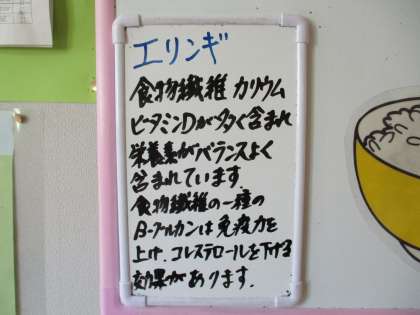 エリンギ
食物繊維 カリウム
ビタミンDが多く含まれ
栄養素がバランスよく
含まれています。
食物繊維の一種の
β-グルカンは免疫力を
上げ、コレステロールを下げる
効果があります。